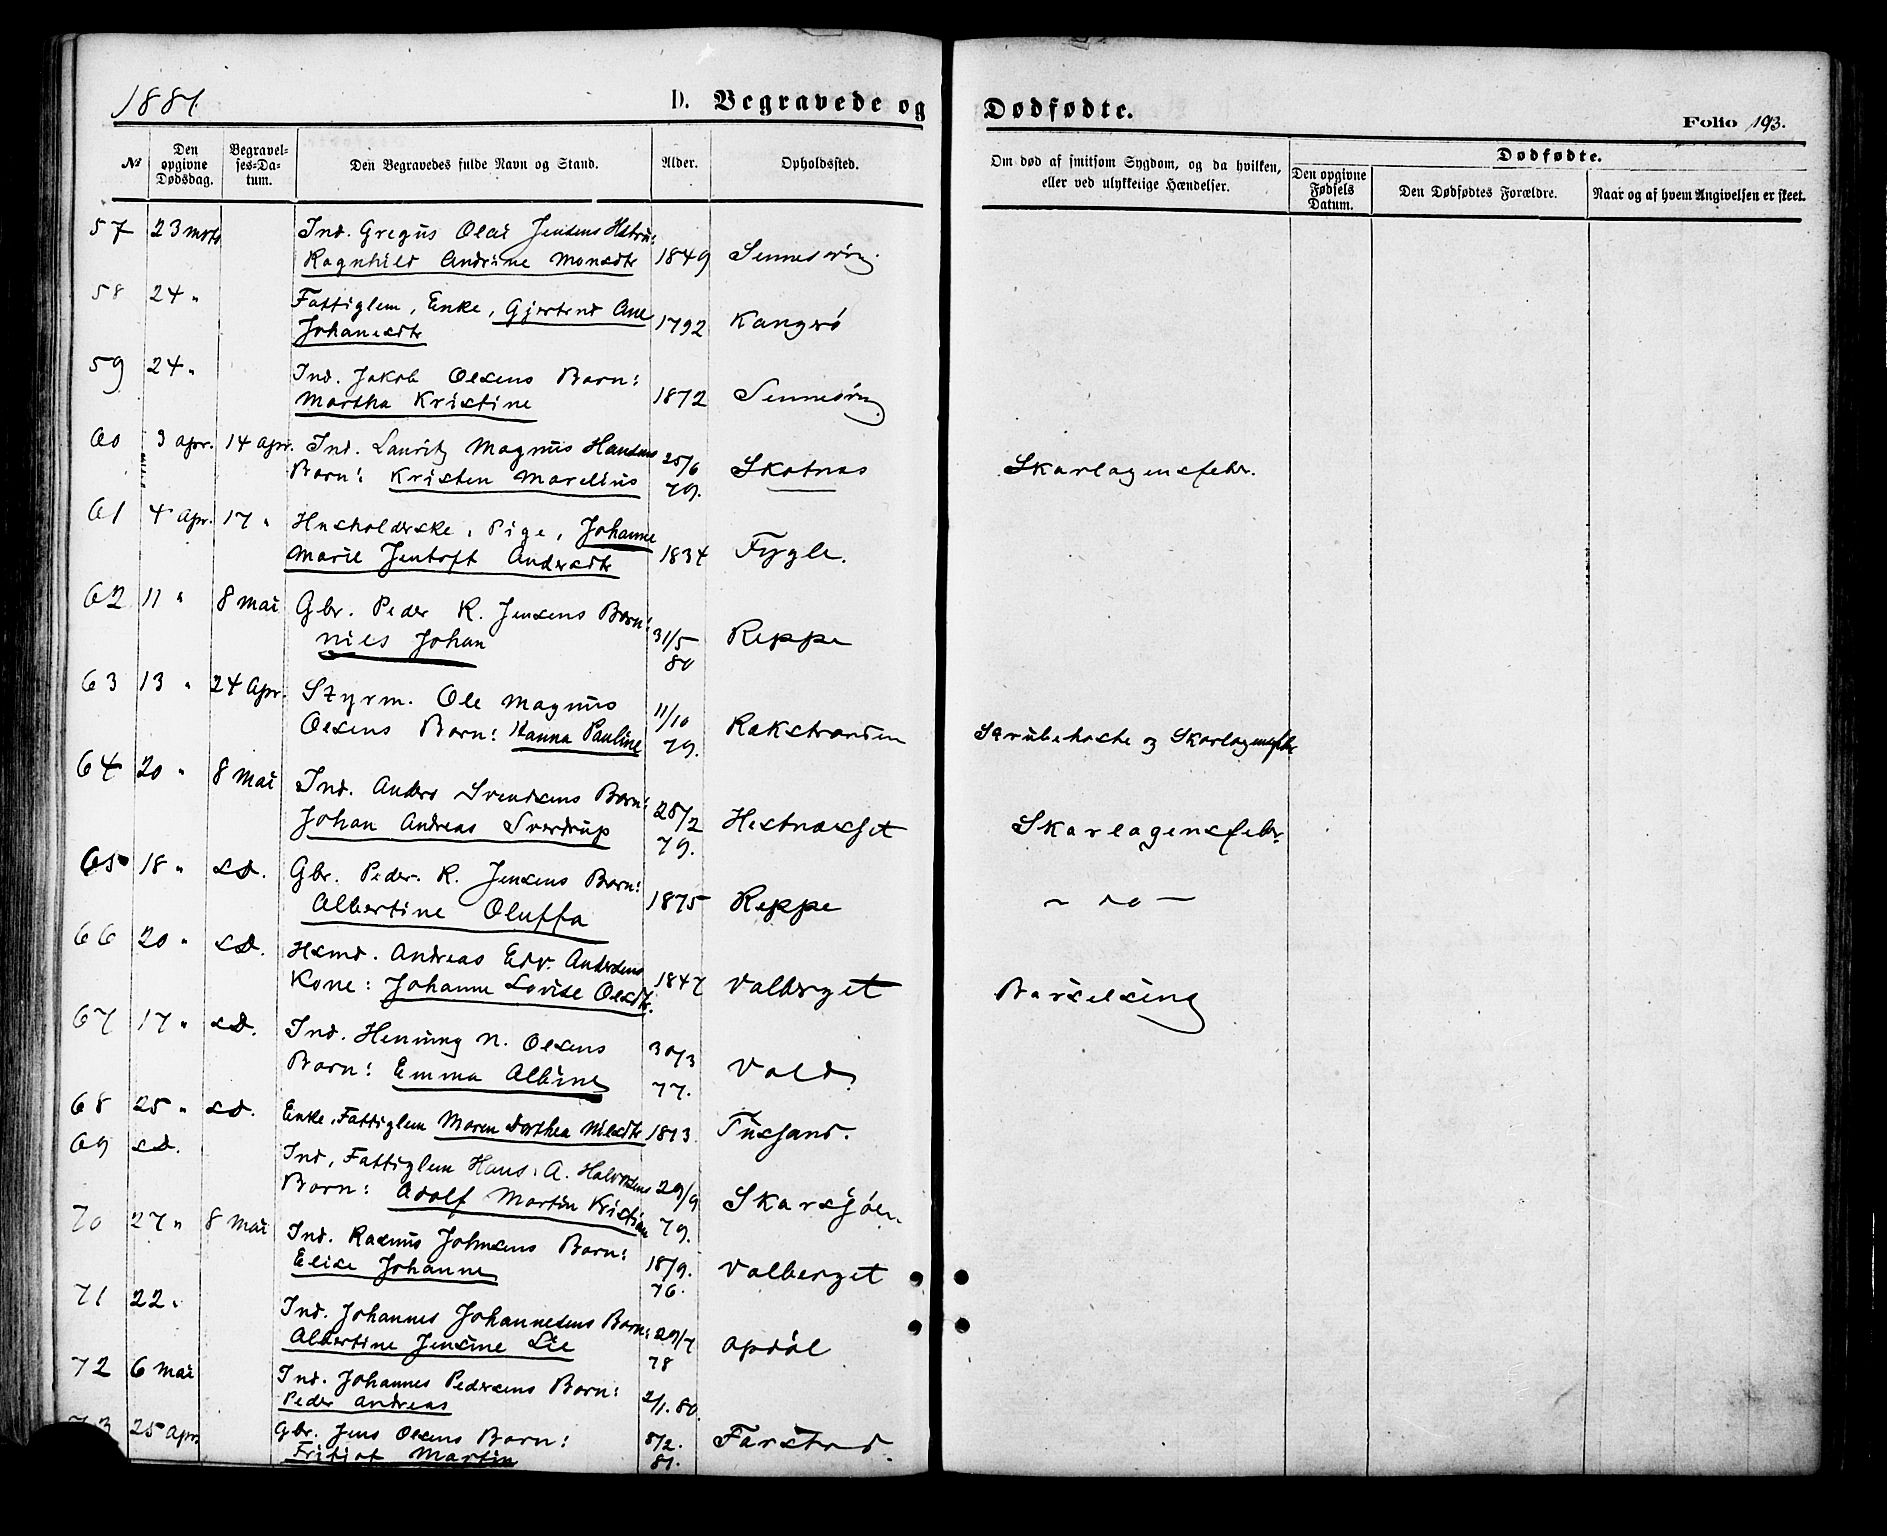 1881
D. Begravede og Dødfødte.
Folio 193.
№
Den opgivne Dødsdag.
Begravelses-Datum.
Den Begravedes fulde Navn og Stand.
Alder.
Opholdssted.
Om død af smitsom Sygdom, og da hvilken, eller ved ulykkelige Hændelser.
Dødfødte.
Den opgivne Fødsels Datum.
Den Dødfødtes Forældre.
Naar og af hvem Angivelsen er skeet.
57 23 mrts Ind. Gregus Olai Jensens Hstru:
Ragnhild Andrine Monsdtr 1849 Sennesvig.
58 24 " Fattiglem, Enke, Gjertrud Ane
Johanesdtr 1792 Kangerø
59 24 " Ind. Jakob Olsens Barn:
Martha Kristine 1872 Sennesvig
60 3 apr. 14 apr. Ind. Lauritz Magnus Hansens 25/6
Barn: Kristen Marelius 79. Skotnes Skarlagensfebr.
61 4 apr. 17 " Husholderske, Pige, Johanne
Marie Jentoft Andersdtr 1834 Fygle.
62 11 " 8 mai Gbr. Peder K. Jensens Barn: 31/5
Nils Johan 80 Reppe
63 13 " 24 Apr. Styrm. Ole Magnus 11/10
Olsens Barn: Hanna Pauline 79. Rakstranden Strubehoste og Skarlagensfebr
64 20 " 8 Mai Ind. Anders Svendsens Barn: 28/2
Johan Andreas Sverdrup 79. Hestnesset Skarlagensfebr.
65 18 " s.d. Gbr. Peder K. Jensens Barn:
Albertine Oluffa 1875 Reppe – do –
66 20 " s.d. Hsmd. Andreas Edv. Andersens
Kone: Johanne Lovise Olsdtr. 1847 Valberget Barselseng
67 17 " s.d. Ind. Henning N. Olsens 30/3
Barn: Emma Albine 77. Vold
68 25 " s.d. Enke, Fattiglem Maren Dorthea Nilsdtr 1813. Tussand.
69 s.d. Ind, Fattiglem Hans A. Halvorsens 29/9
Barn: Adolf Martin Kristian 79. Skarsjøen
70 27 " 8 mai Ind. Rasmus Johnsens Barn: 18/9.
Elise Johanne 76. Valberget
71 22 " Ind. Johannes Johannesens Barn: 29/7
Albertine Jensine Lie 78 Opdøl
72 6 mai Ind. Johannes Pedersens Barn:
Peder Andreas 2/1. 80.
73 25 apr. Gbr. Jens Olsens Barn: 8/2.
Fritjof Martin 81. Farstad.